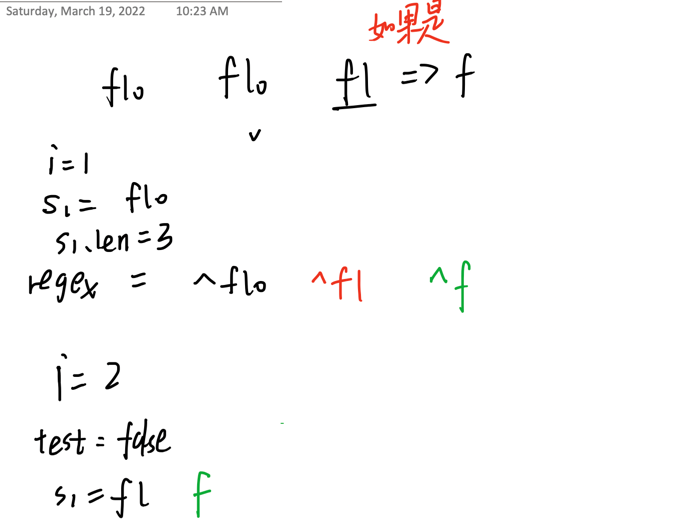 Saturday, March 19, 2022 10:23 AM
如果是
flo flo fl => f
v
i=1
s1= flo
s1.len=3
regex = ^flo ^fl ^f
i=2
test=false
s1=fl f